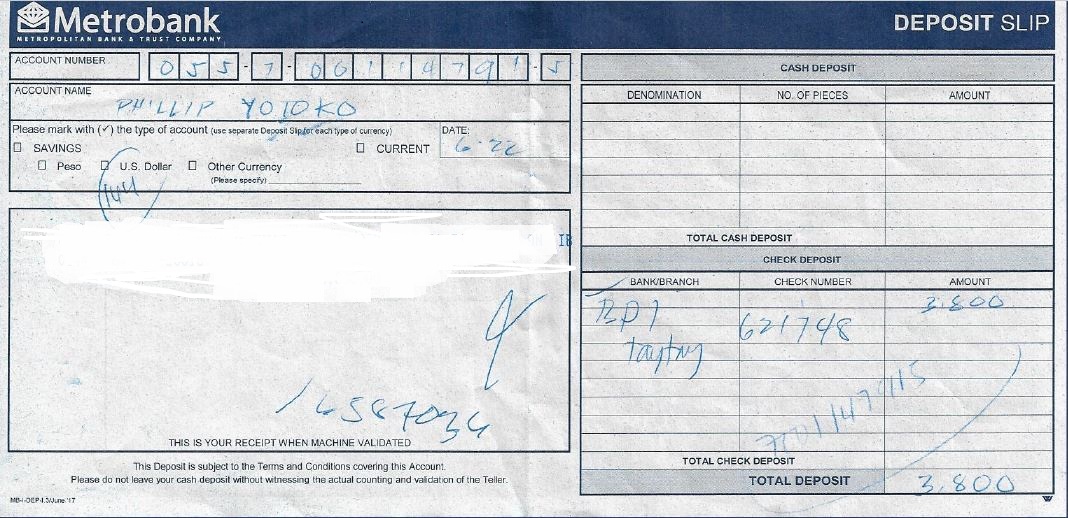 Metrobank
METROPOLITAN BANK & TRUST COMPANY
DEPOSIT SLIP
ACCOUNT NUMBER
055-7-0611479 1-5
ACCOUNT NAME
PHILLIP YOTOKO
Please mark with (✓) the type of account (use separate Deposit Slip for each type of currency)
SAVINGS
CURRENT
Peso
U.S. Dollar
Other Currency
(Please specify)
DATE:
6-22
144
IB
16587034
THIS IS YOUR RECEIPT WHEN MACHINE VALIDATED
This Deposit is subject to the Terms and Conditions covering this Account.
Please do not leave your cash deposit without witnessing the actual counting and validation of the Teller.
MB-I-DEP-I.3/June.'17
CASH DEPOSIT
DENOMINATION NO. OF PIECES AMOUNT
TOTAL CASH DEPOSIT
CHECK DEPOSIT
BANK/BRANCH CHECK NUMBER AMOUNT
BPI 621748 3,800
Taytay
TOTAL CHECK DEPOSIT
TOTAL DEPOSIT 3,800